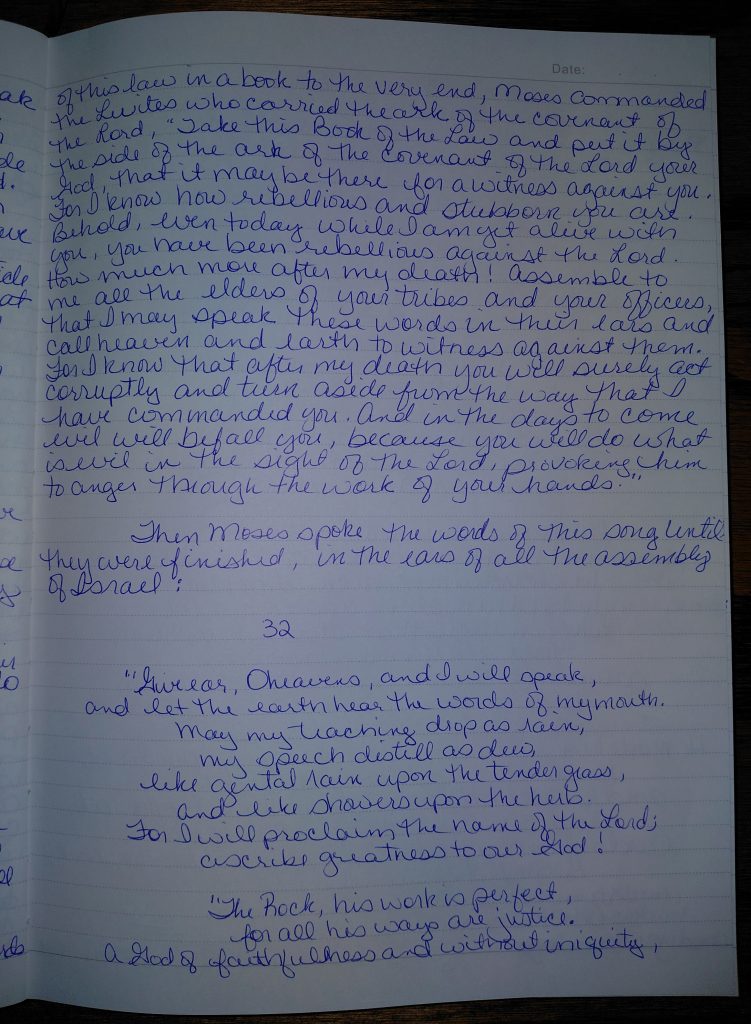 Date:
of this law in a book to the very end, Moses commanded
the Levites who carried the ark of the covenant of
the Lord, "Take this Book of the Law and put it by
the side of the ark of the covenant of the Lord your
God, that it may be there for a witness against you.
For I know how rebellious and stubborn you are.
Behold, even today while I am yet alive with
you, you have been rebellious against the Lord.
How much more after my death! Assemble to
me all the elders of your tribes and your officers,
that I may speak these words in their ears and
call heaven and earth to witness against them.
For I know that after my death you will surely act
corruptly and turn aside from the way that I
have commanded you. And in the days to come
evil will befall you, because you will do what
is evil in the sight of the Lord, provoking him
to anger through the work of your hands."
Then Moses spoke the words of this song until
they were finished, in the ears of all the assembly
of Israel:
32
"Give ear, O heavens, and I will speak,
and let the earth hear the words of my mouth.
May my teaching drop as rain,
my speech distill as dew,
like gental rain upon the tender grass,
and like showers upon the herb.
For I will proclaim the name of the Lord;
ascribe greatness to our God!
"The Rock, his work is perfect,
for all his ways are justice.
A God of faithfulness and without iniquity,